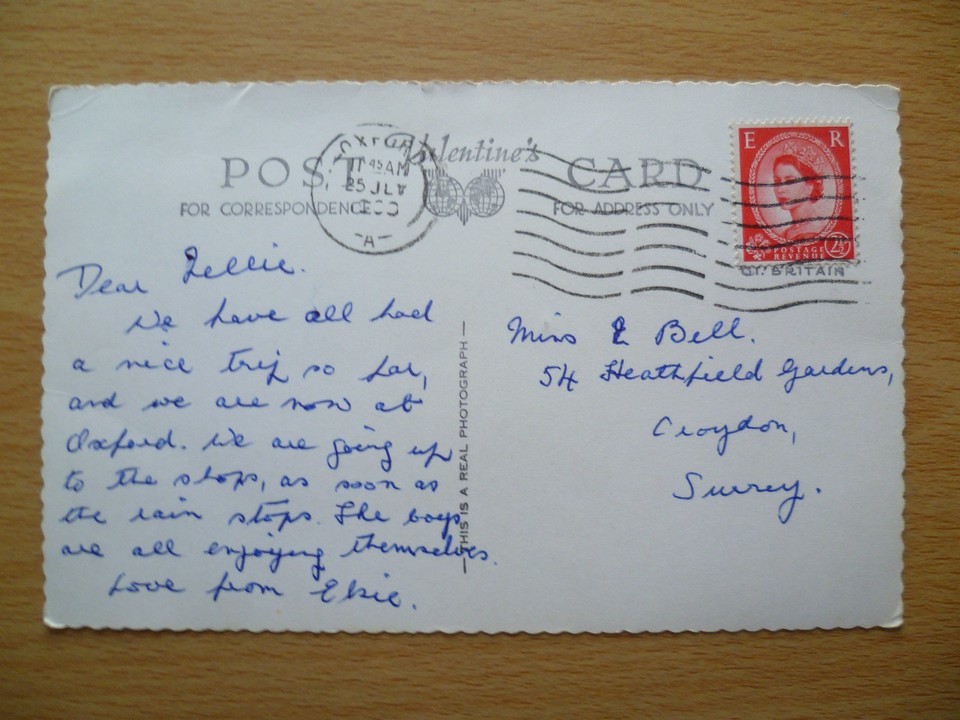 POST Valentine's CARD
FOR CORRESPONDENCE FOR ADDRESS ONLY
OXFORD
11 45 AM
25 JLY
- A -
E R
POSTAGE
REVENUE
2½
GT. BRITAIN
Dear
We have all had
a nice trip so far,
and we are now at
Oxford. We are going up
to the shops, as soon as
the rain stops. The boys
are all enjoying themselves.
Love from Elsie.
THIS IS A REAL PHOTOGRAPH
Miss Bell.
54 Heathfield Gardens,
Croydon,
Surrey.